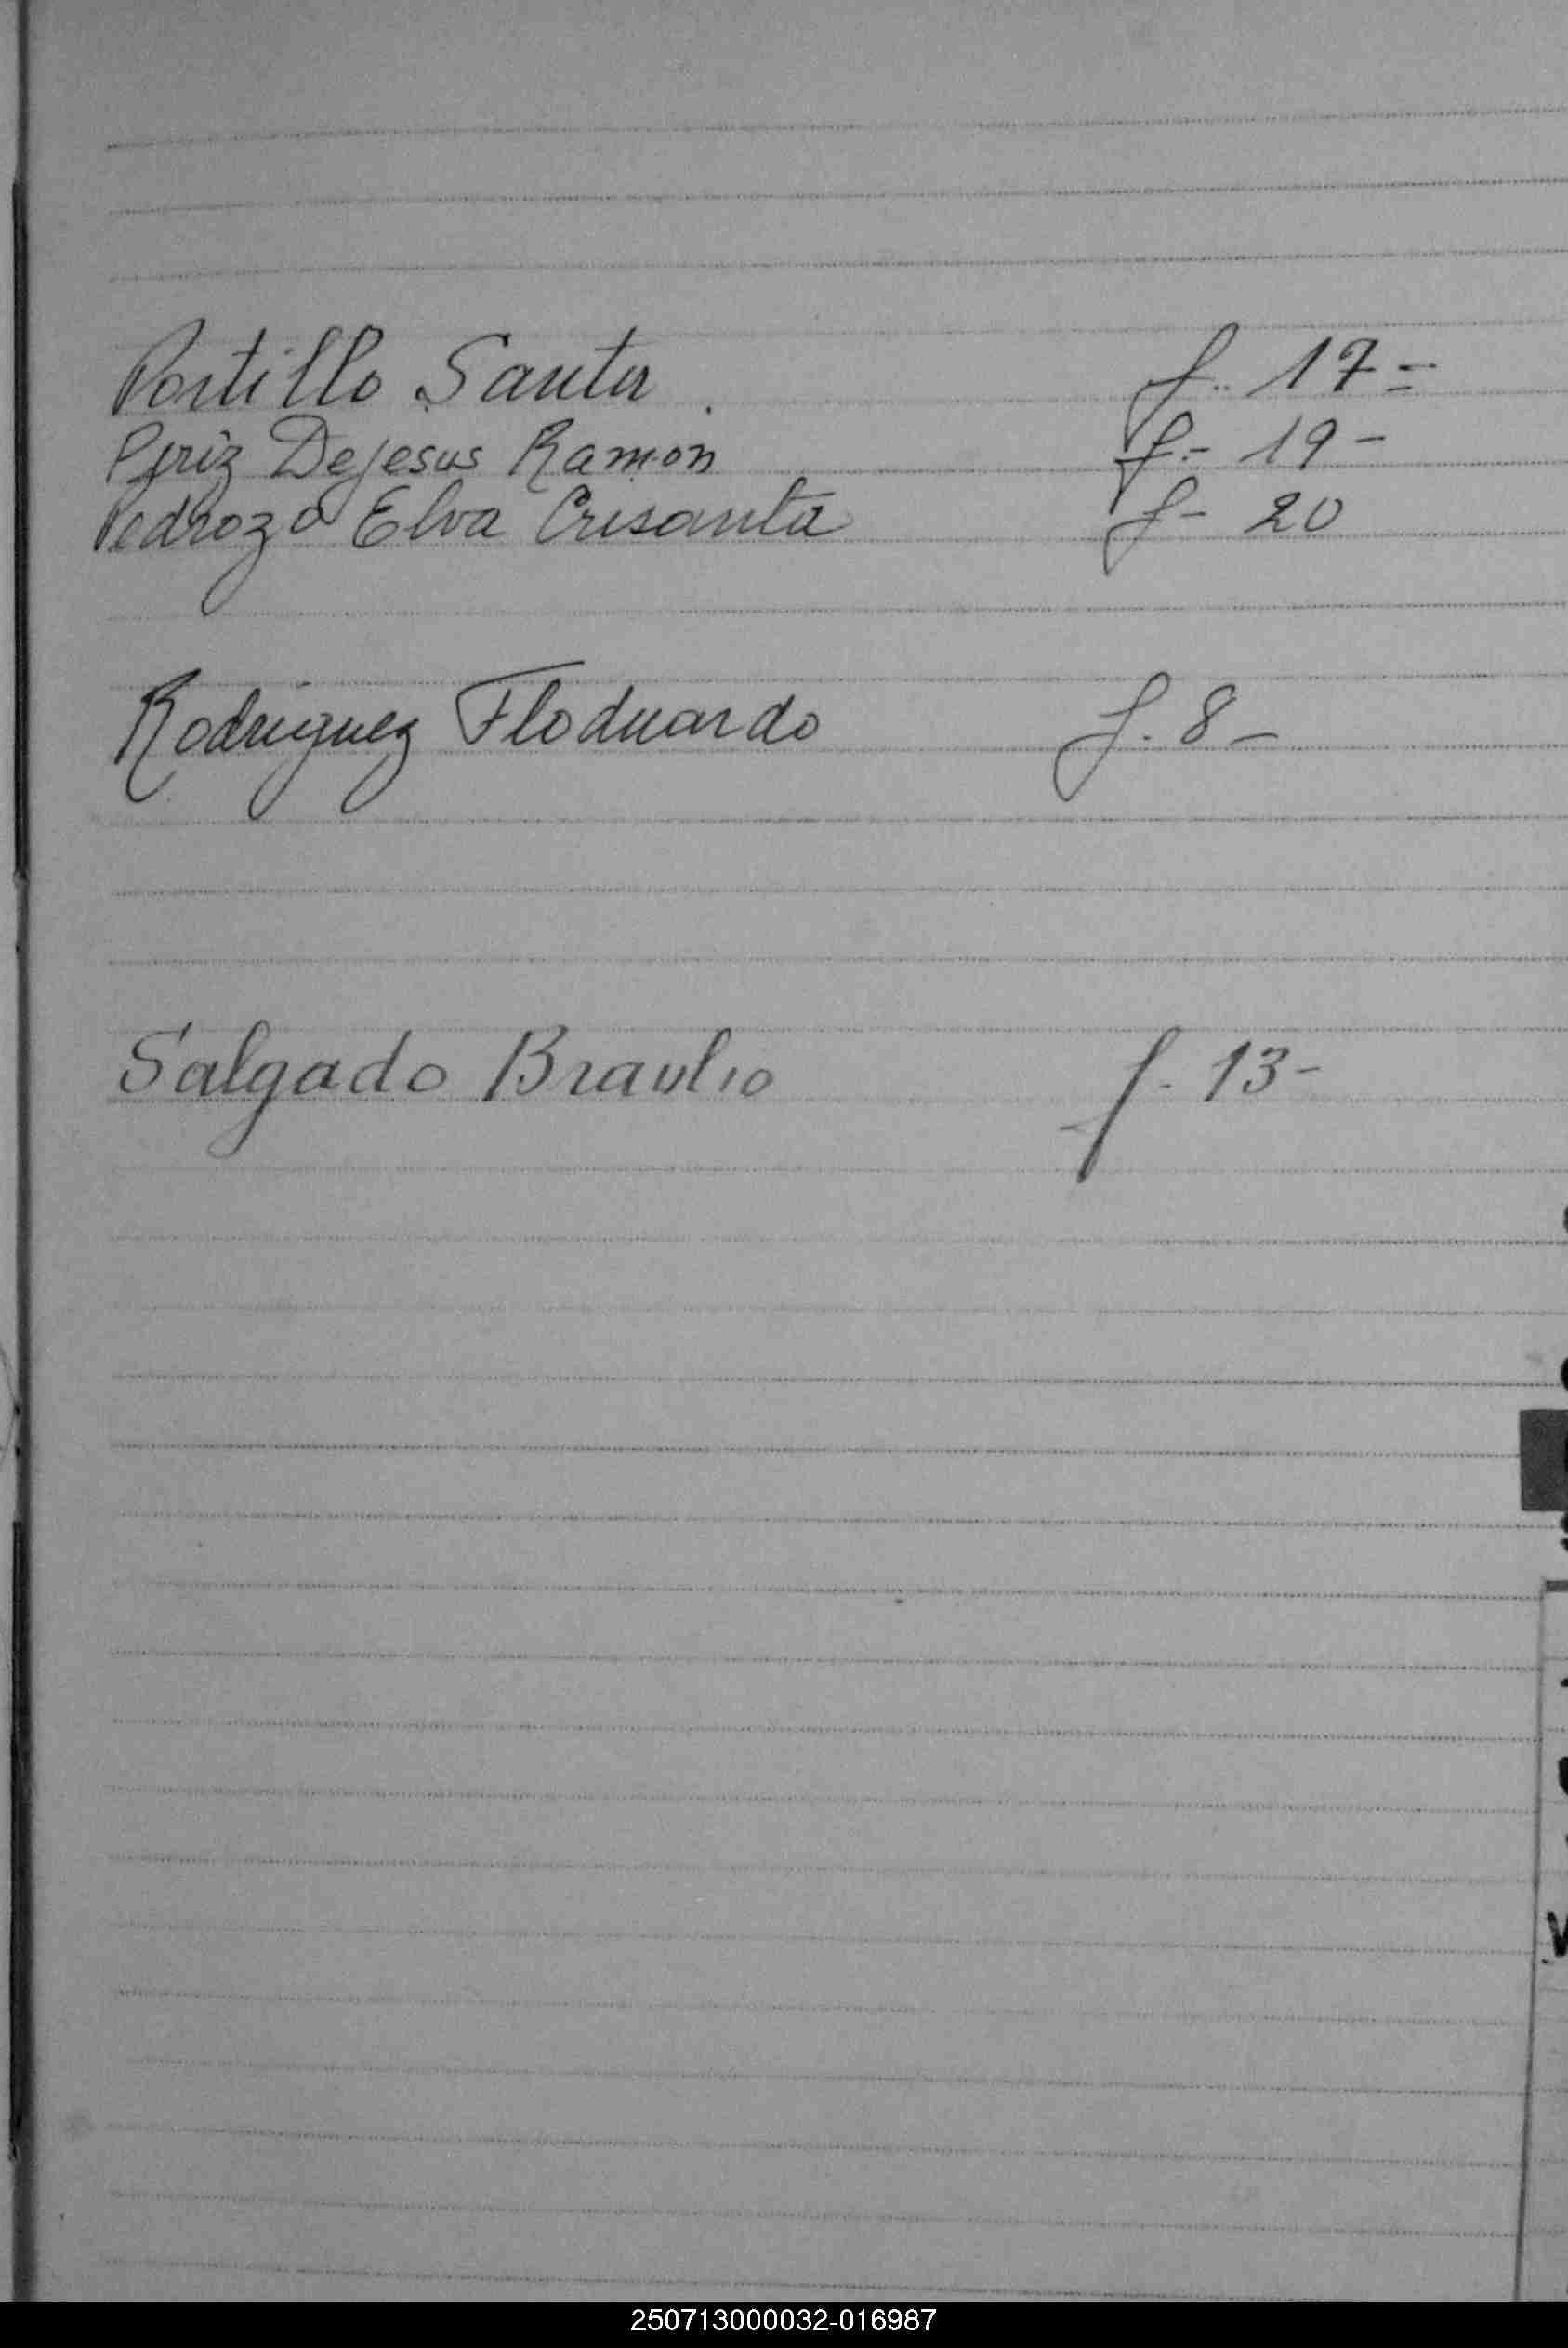 Portillo Santa. f. 17=
Periz Dejesus Ramon f.- 19-
Pedrozo Elva Crisanta f- 20
Rodriguez Floduardo f. 8-
Salgado Braulio f. 13-
250713000032-016987